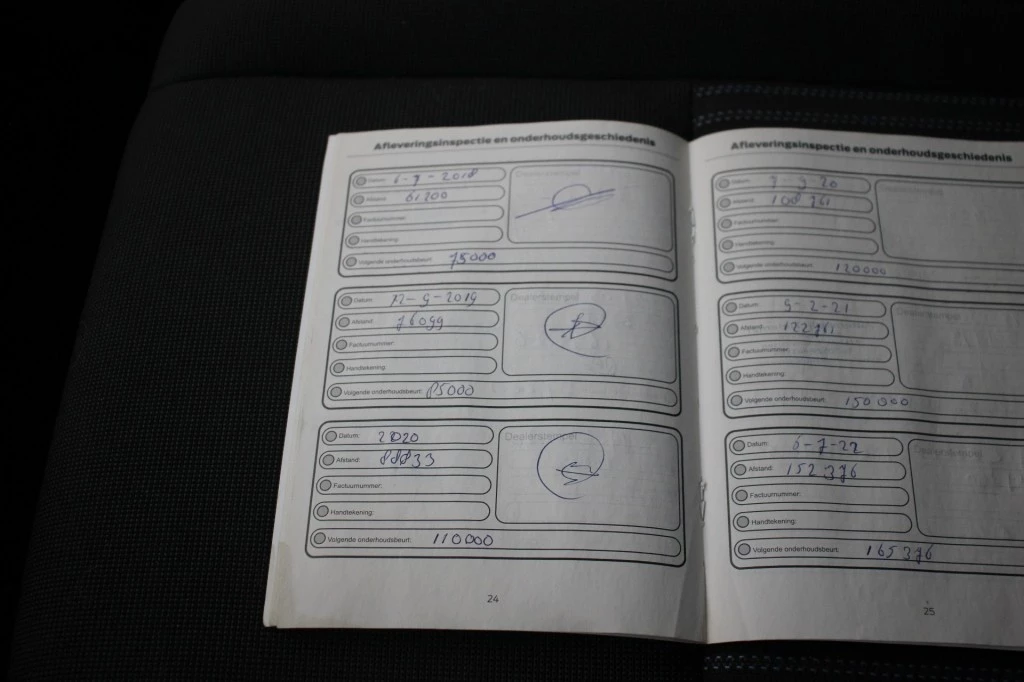 Afleveringsinspectie en onderhoudsgeschiedenis
Datum: 6-9-2018
Dealerstempel
Afstand: 61200
Factuurnummer:
Handtekening:
Volgende onderhoudsbeurt: 75000
Datum: 12-9-2019
Dealerstempel
Afstand: 76099
Factuurnummer:
Handtekening:
Volgende onderhoudsbeurt: 85000
Datum: 2020
Dealerstempel
Afstand: 88833
Factuurnummer:
Handtekening:
Volgende onderhoudsbeurt: 110000
24
Afleveringsinspectie en onderhoudsgeschiedenis
Datum: 9-9-20
Dealerstempel
Afstand: 108761
Factuurnummer:
Handtekening:
Volgende onderhoudsbeurt: 120000
Datum: 9-2-21
Dealerstempel
Afstand: 122761
Factuurnummer:
Handtekening:
Volgende onderhoudsbeurt: 150000
Datum: 6-7-22
Dealerstempel
Afstand: 152376
Factuurnummer:
Handtekening:
Volgende onderhoudsbeurt: 165376
25